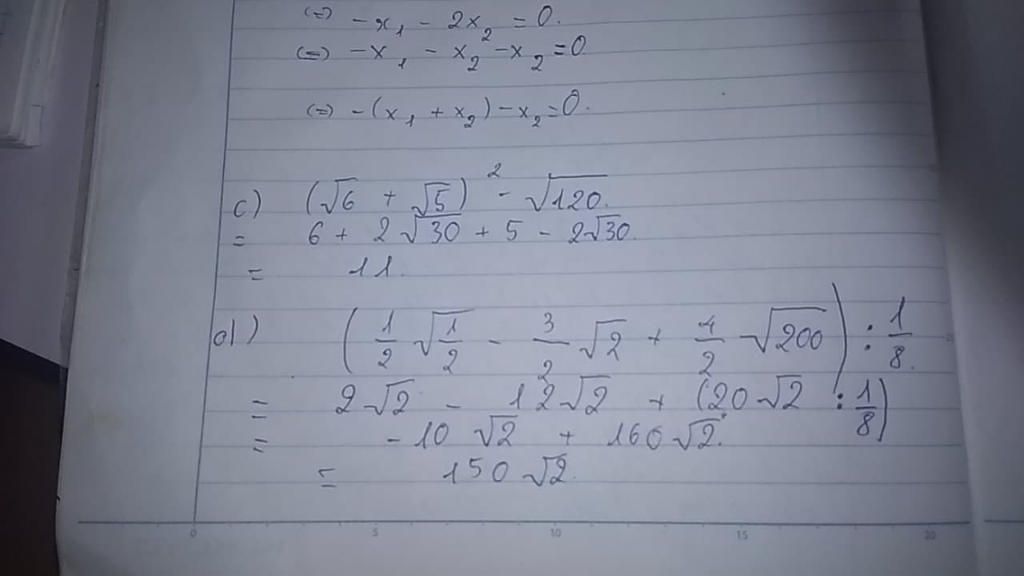 (=) -x₁ - 2x₂ = 0.
(=) -x₁ - x₂ - x₂ = 0
(=) -(x₁ + x₂) - x₂ = 0.
c) (√6 + √5)² - √120.
= 6 + 2√30 + 5 - 2√30.
= 11.
d) (1/2 √(1/2) - 3/2 √2 + 4/2 √200) : 1/8.
= 2√2 - 12√2 + (20√2 : 1/8)
= -10√2 + 160√2.
= 150√2.
0 5 10 15 20